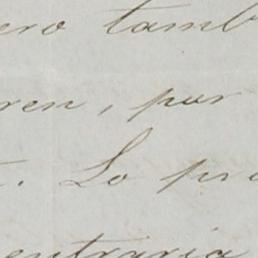 ero tamb
ren, por
. Lo pr
entraria